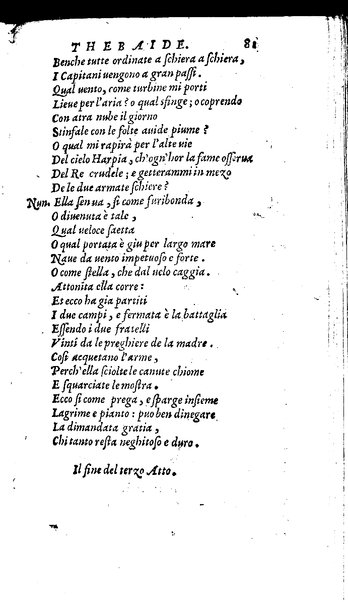 THEBAIDE. 81
Benche tutte ordinate a schiera a schiera,
I Capitani uengono a gran passi.
Qual uento, come turbine mi porti
Lieue per l'aria? o qual sfinge; o coprendo
Con atra nube il giorno
Stinfale con le folte auide piume?
O qual mi rapirà per l'alte uie
Del cielo Harpia, ch'ogn'hor la fame osserua
Del Re crudele; e getterammi in mezo
De le due armate schiere?
Nun. Ella sen ua, si come furibonda,
O diuenuta è tale,
Qual ueloce saetta
O qual portata è giu per largo mare
Naue da uento impetuoso e forte.
O come stella, che dal uelo caggia.
Attonita ella corre:
Et ecco ha gia partiti
I due campi, e fermata è la battaglia
Essendo i due fratelli
Vinti da le preghiere de la madre.
Cosi acquetano l'arme,
Perch'ella sciolte le canute chiome
E squarciate le mostra.
Ecco si come prega, e sparge insieme
Lagrime e pianto: puo ben dinegare
La dimandata gratia,
Chi tanto resta neghitoso e duro.
Il fine del terzo Atto.